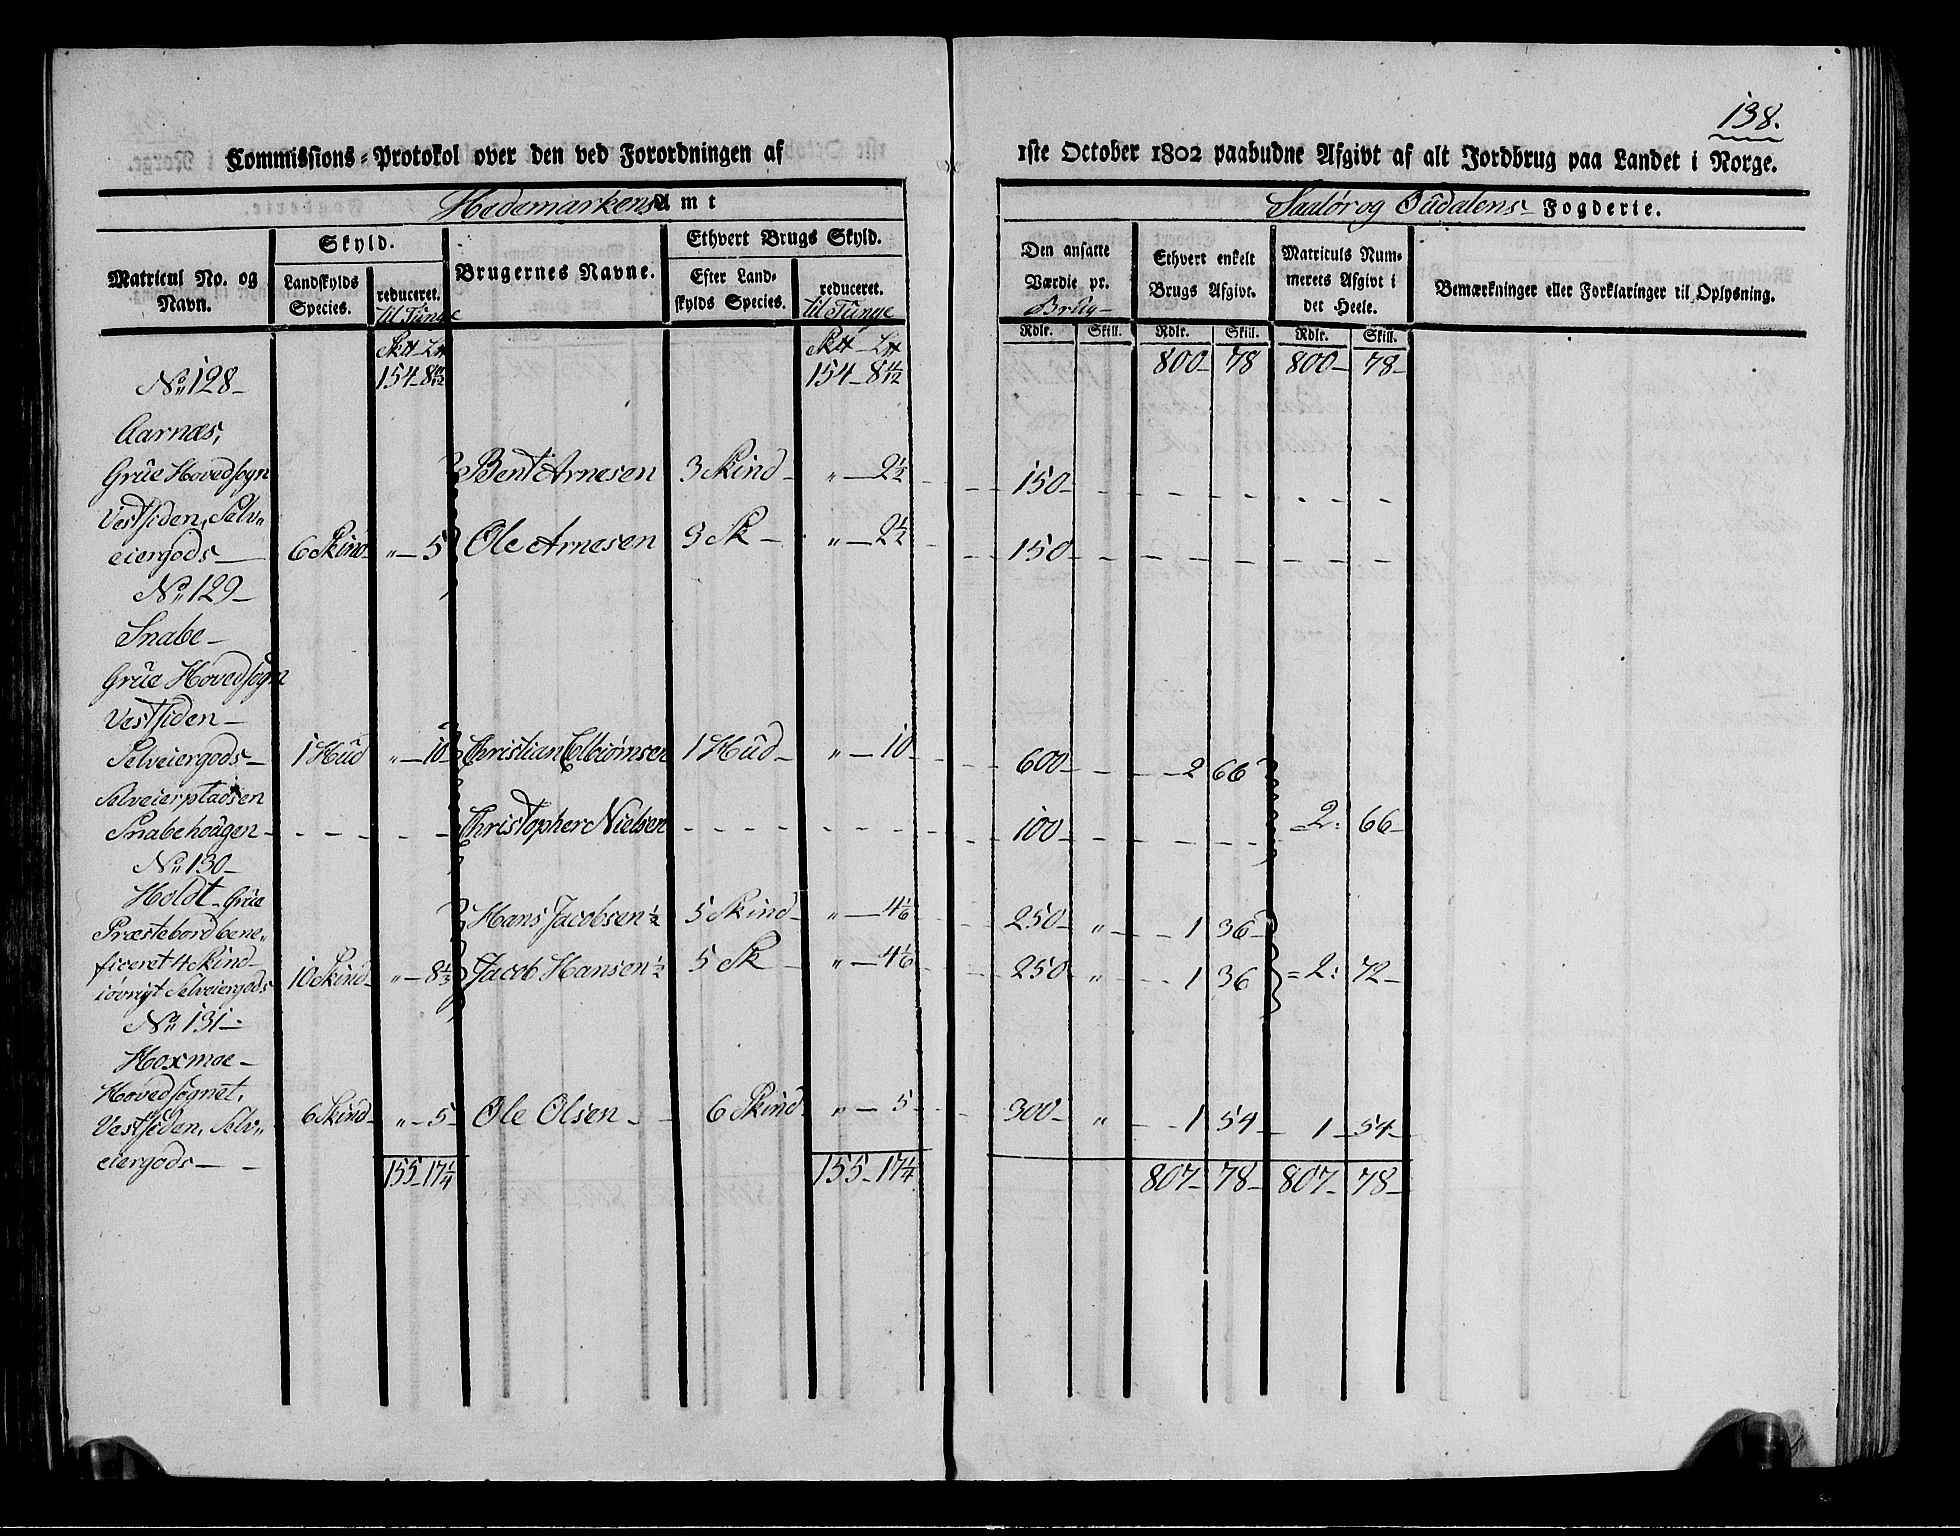 138.
Commissions-Protokol over den ved Forordningen af 1ste October 1802 paabudne Afgivt af alt Jordbrug paa Landet i Norge.
Hedemarkens Amt Soelør og Oudalens Fogderie.
Matricul No. og Navn. Skyld. Landskylds Species. reduceret. til Tunge Brugernes Navne. Ethvert Brugs Skyld. Efter Landskylds Species. reduceret. til Tunge Den ansatte Værdie pr. Brug Ethvert enkelt Brugs Afgivt. Matriculs Nummerets Afgivt i det Heele. Bemærkninger eller Forklaringer til Oplysning.
Rdlr. Skill. Rdlr. Skill. Rdlr. Skill.
No 128 154 - 154 - 800 - 78 800 - 78 -
Aarnæs,
Grüe Hovedsogn Bent Arnesen 3 Skind - „ — 2½ 150 -
Vestsiden, Selv„
eiergods — 6 Skind „ — 5 Ole Arnesen 3 Sk — „ — 2½ 150 -
No 129 -
Snabe -
Grüe Hovedsogn
Vestsiden -
Selveiergods - 1 Hüd „ — 10 Christian 1 Hüd - „ — 10 600 - 2 66
Selveierpladsen
Snabehougen - Christopher Nielsen 100 - 2: 66 -
No 130 -
Holdt - Grüe Hans Jacobsen ½ 5 Skind - „ — 4⅙ 250 - „ - 1 36
Præstebord bene„
ficeret 4 Skind - 10 Skind - „ — 8⅓ Jacob Hansen ½ 5 Sk - „ — 4⅙ 250 „ - 1 36 = 2: 72 -
iøvrigt Selveiergods
No 131 -
Hoxmoe -
Hovedsognet,
Vestsiden, Selv„ 6 Skind - „ - 5 - Ole Olsen - 6 Skind - „ — 5 - 300 - „ - 1 54 - 1 - 54 -
eiergods — 155 - 17¼ 155 - 17¼ 807 - 78 - 807 - 78 -